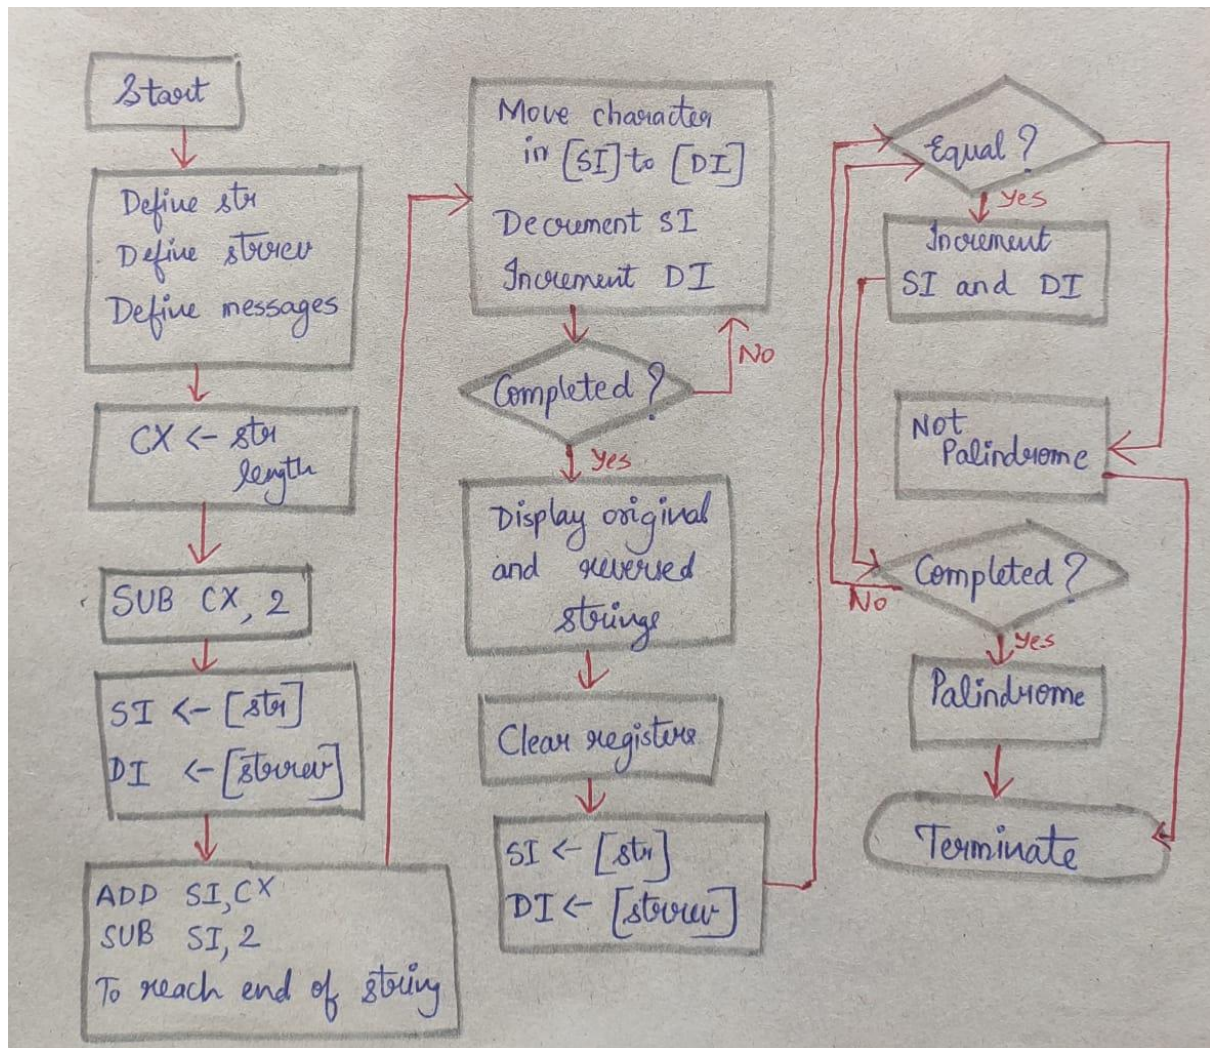 Start
Define str
Define strrev
Define messages
CX <- str
length
SUB CX, 2
SI <- [str]
DI <- [strrev]
ADD SI, CX
SUB SI, 2
To reach end of string
Move character
in [SI] to [DI]
Decrement SI
Increment DI
Completed?
No
Yes
Display original
and reversed
strings
Clear registers
SI <- [str]
DI <- [strrev]
Equal?
Yes
Increment
SI and DI
Not
Palindrome
Completed?
No
Yes
Palindrome
Terminate